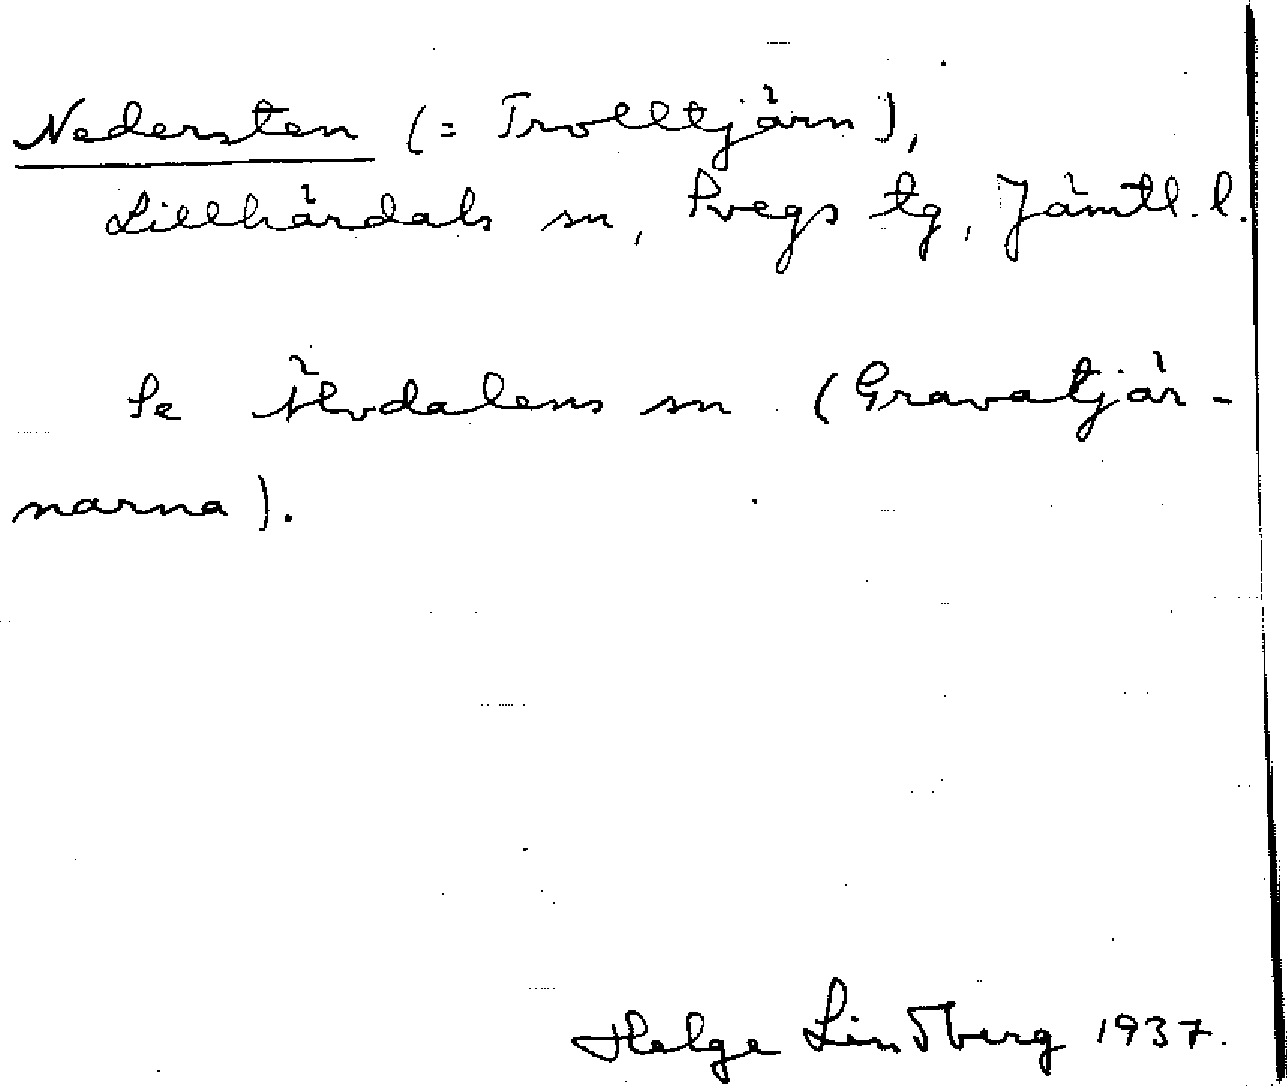 Nedersten (= Trolltjärn),
Lillhärdals sn, Svegs tg, Jämtl. l.
Se Älvdalens sn (Gravatjär-
narna).
Helge Lindberg 1937.